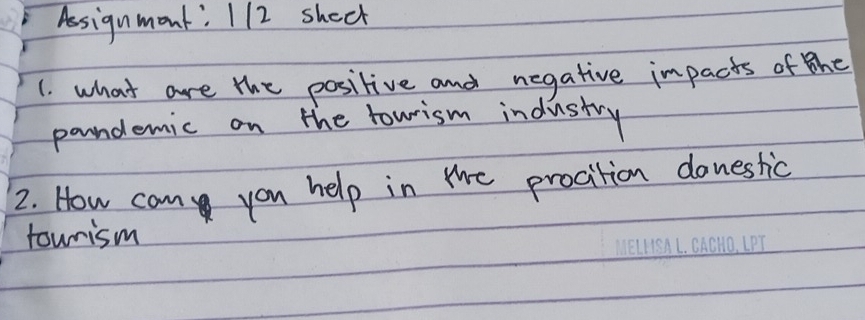 Assignment: 1/2 sheet
1. what are the positive and negative impacts of the
pandemic on the tourism industry
2. How can you help in the procition domestic
tourism
MELLISA L. CACHO, LPT